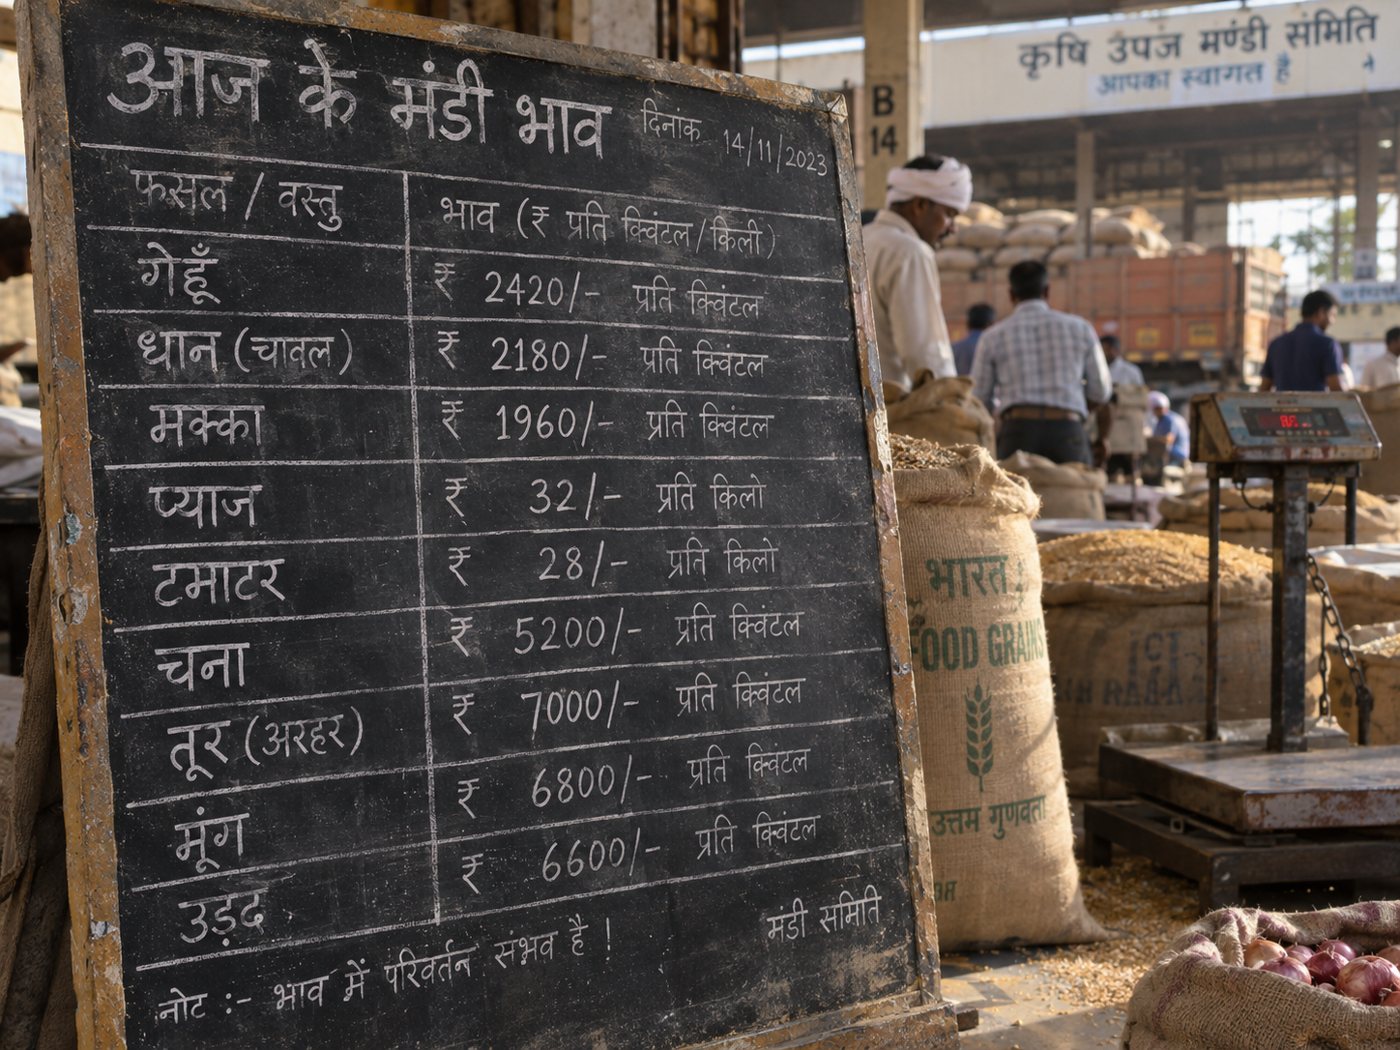 आज के मंडी भाव
दिनांक 14/11/2023
फसल / वस्तु भाव (₹ प्रति क्विंटल/किली)
गेहूँ ₹ 2420/- प्रति क्विंटल
धान (चावल) ₹ 2180/- प्रति क्विंटल
मक्का ₹ 1960/- प्रति क्विंटल
प्याज ₹ 32/- प्रति किलो
टमाटर ₹ 28/- प्रति किलो
चना ₹ 5200/- प्रति क्विंटल
तूर (अरहर) ₹ 7000/- प्रति क्विंटल
मूंग ₹ 6800/- प्रति क्विंटल
उड़द ₹ 6600/- प्रति क्विंटल
नोट :- भाव में परिवर्तन संभव है !
मंडी समिति
B
14
कृषि उपज मण्डी समिति
आपका स्वागत है ने
भारत
FOOD GRAINS
उत्तम गुणवता